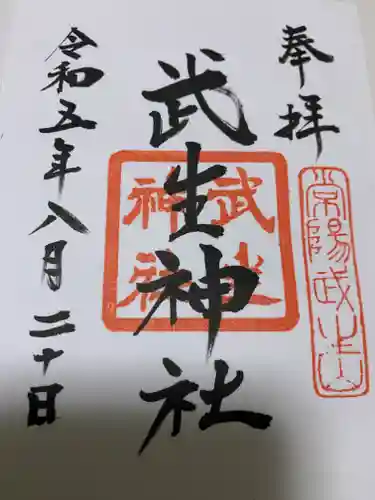 奉拝
常陽武生山
武生神社
武生神社
令和五年八月二十日